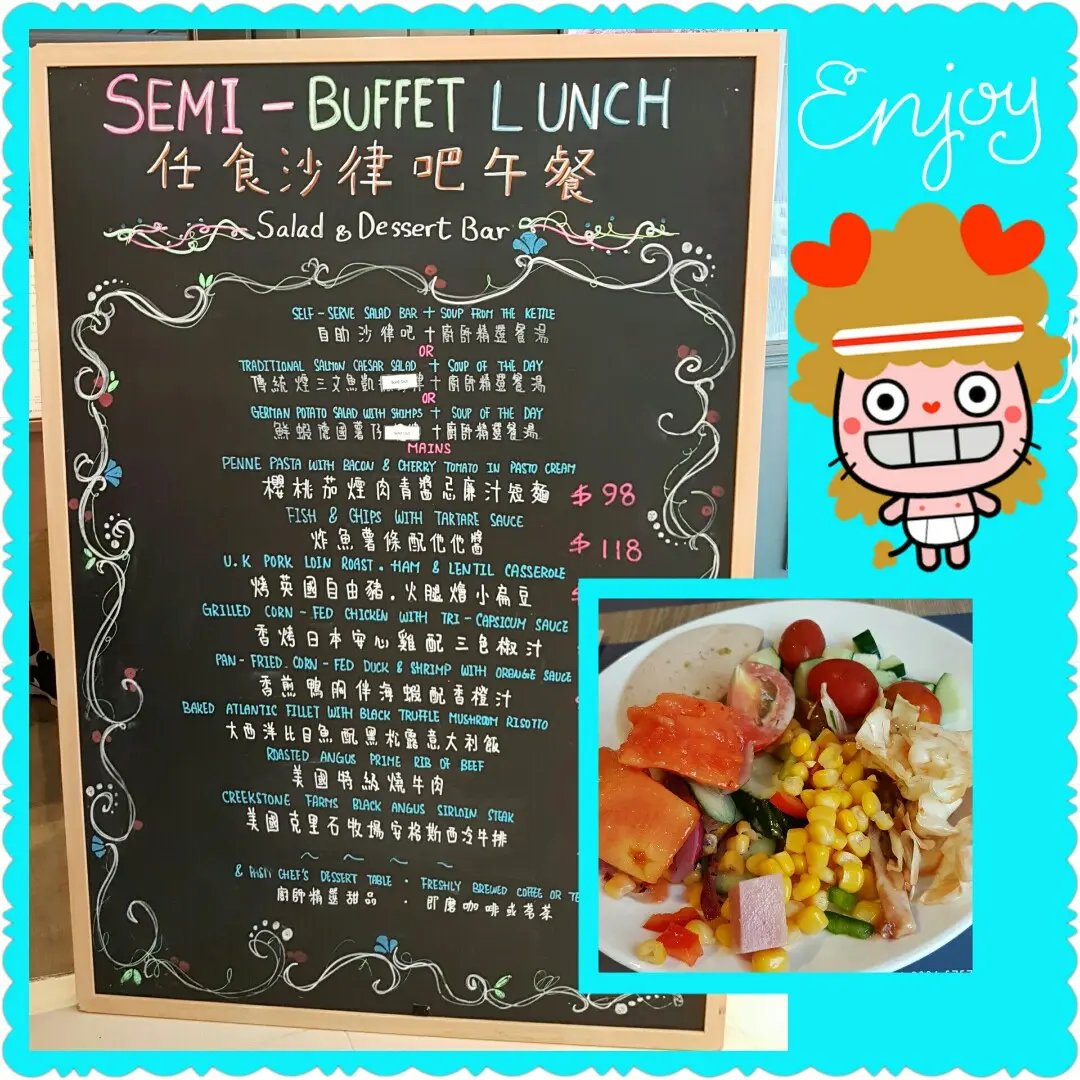 SEMI - BUFFET LUNCH
任食沙律吧午餐
Salad & Dessert Bar
SELF - SERVE SALAD BAR + SOUP FROM THE KETTLE
自助沙律吧+廚師精選餐湯
OR
TRADITIONAL SALMON CAESAR SALAD + SOUP OF THE DAY
傳統煙三文魚凱 律+廚師精選餐湯
OR
GERMAN POTATO SALAD WITH SHIMPS + SOUP OF THE DAY
鮮蝦德國薯乃 +廚師精選餐湯
MAINS
PENNE PASTA WITH BACON & CHERRY TOMATO IN PASTO CREAM
櫻桃茄煙肉青醬忌廉汁短麵 $98
FISH & CHIPS WITH TARTARE SAUCE
炸魚薯條配他他醬 $118
U.K PORK LOIN ROAST. HAM & LENTIL CASSEROLE
烤英國自由豬.火腿燴小扁豆
GRILLED CORN - FED CHICKEN WITH TRI - CAPSICUM SAUCE
香烤日本安心雞配三色椒汁
PAN - FRIED CORN - FED DUCK & SHRIMP WITH ORANGE SAUCE
香煎鴨胸伴海蝦配香橙汁
BAKED ATLANTIC FILLET WITH BLACK TRUFFLE MUSHROOM RISOTTO
大西洋比目魚配黑松露意大利飯
ROASTED ANGUS PRIME RIB OF BEEF
美國特級燒牛肉
CREEKSTONE FARMS BLACK ANGUS SIRLOIN STEAK
美國克里石牧場安格斯西冷牛排
& CHEF'S DESSERT TABLE · FRESHLY BREWED COFFEE OR
廚師精選甜品 · 即磨咖啡或茗茶
Enjoy